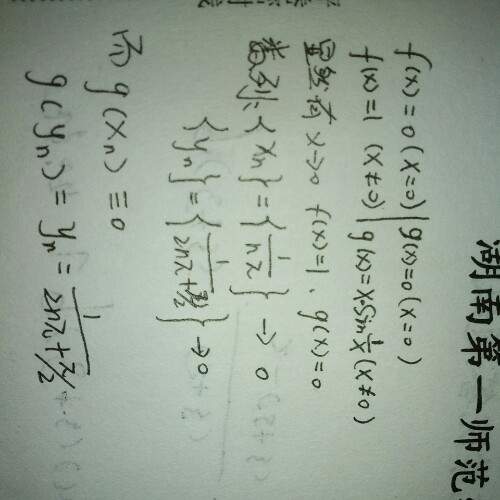 湖南第一师范
f(x)=0(x=0) | g(x)=0(x=0)
f(x)=1 (x≠0) | g(x)=x·sin 1/x (x≠0)
显然有 x→0 f(x)=1、g(x)=0
数列: {xₙ}={1/nπ}→0
{yₙ}={1/(2nπ+π/2)}→0
而 g(xₙ)≡0
g(yₙ)=yₙ=1/(2nπ+π/2)